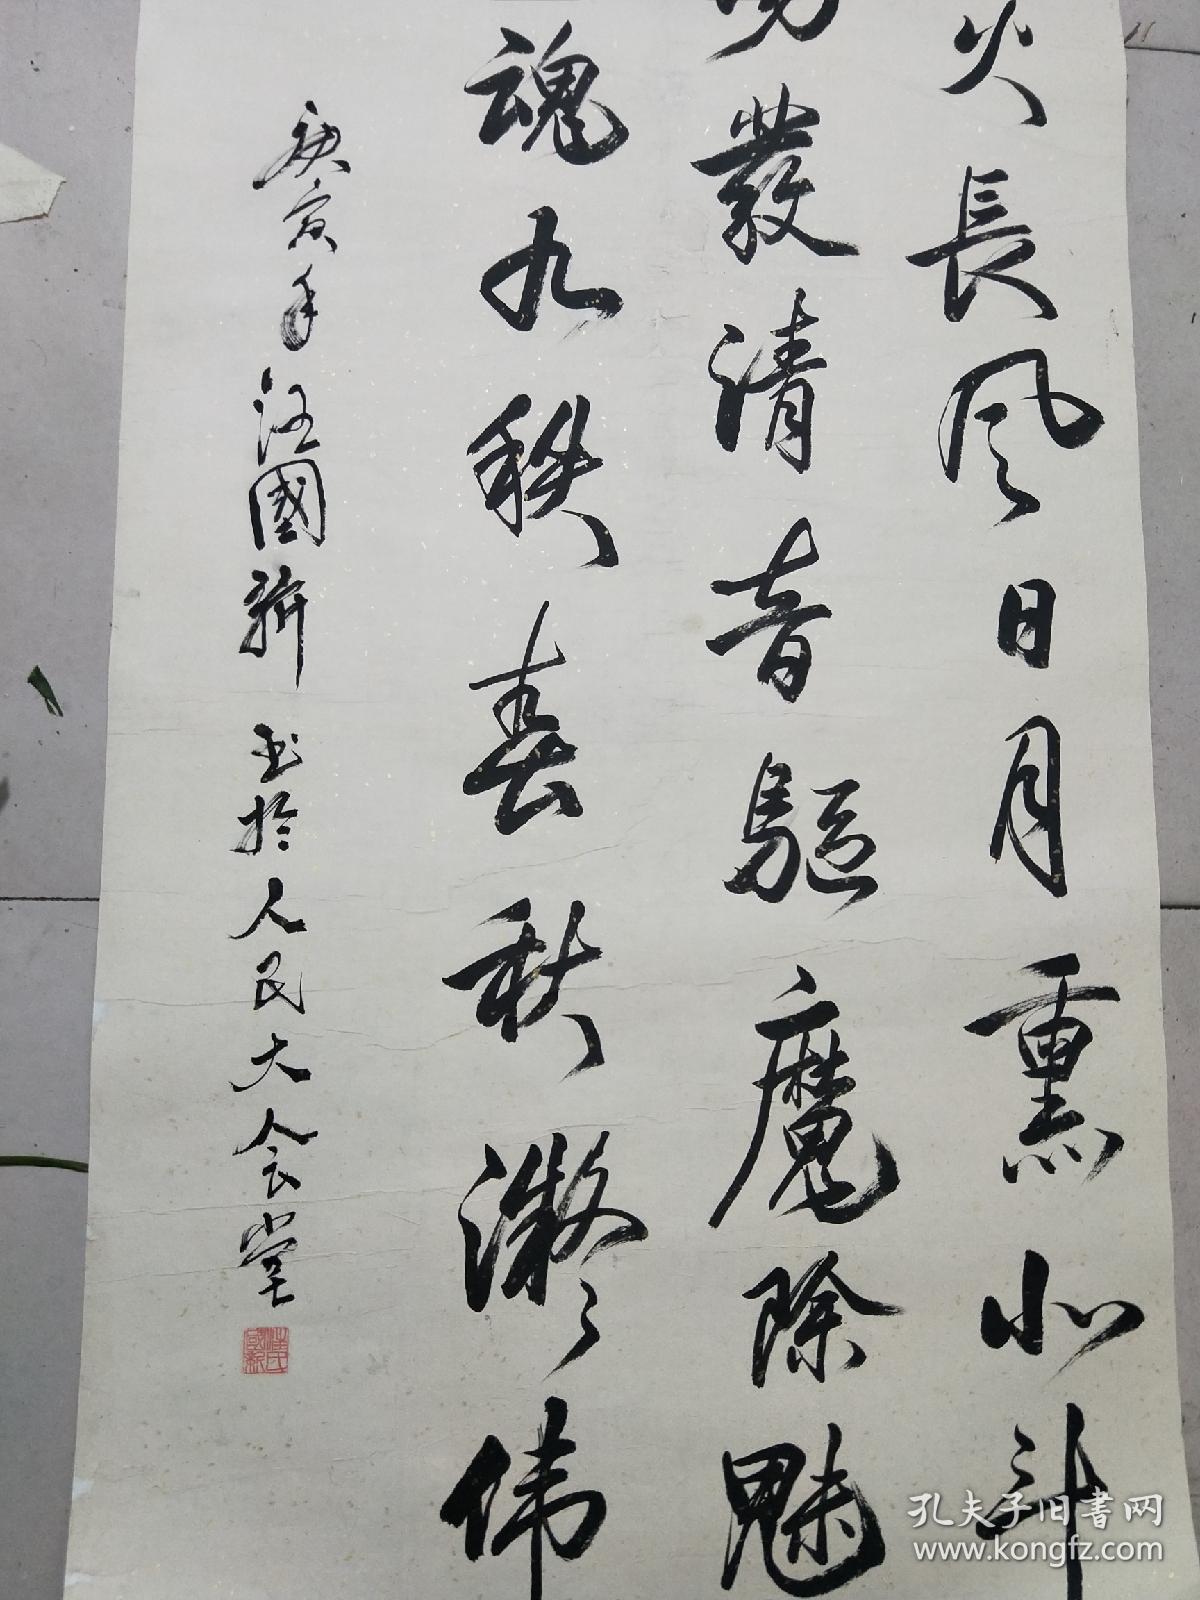 火長風日月熏北斗
发清音驅魔除魅
魂九秩春秋凝偉
庚寅年汪國新書於人民大会堂
汪氏國新
孔夫子旧書网
www.kongfz.com